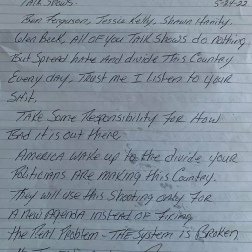 Talk Shows: 5-24-22
Ben Ferguson, Jessie Kelly, Shawn Hanity,
Glen Beck, All of you Talk Shows do nothing
But Spread hate and divide This Country
Every day. Trust me I listen to your
Shit.
Take Some Responsibility for How
Bad it is out there.
America wake up to the divide your
Politicians are making this Country.
They will use this Shooting only for
A new agenda instead of fixing
the Real Problem - The System is Broken